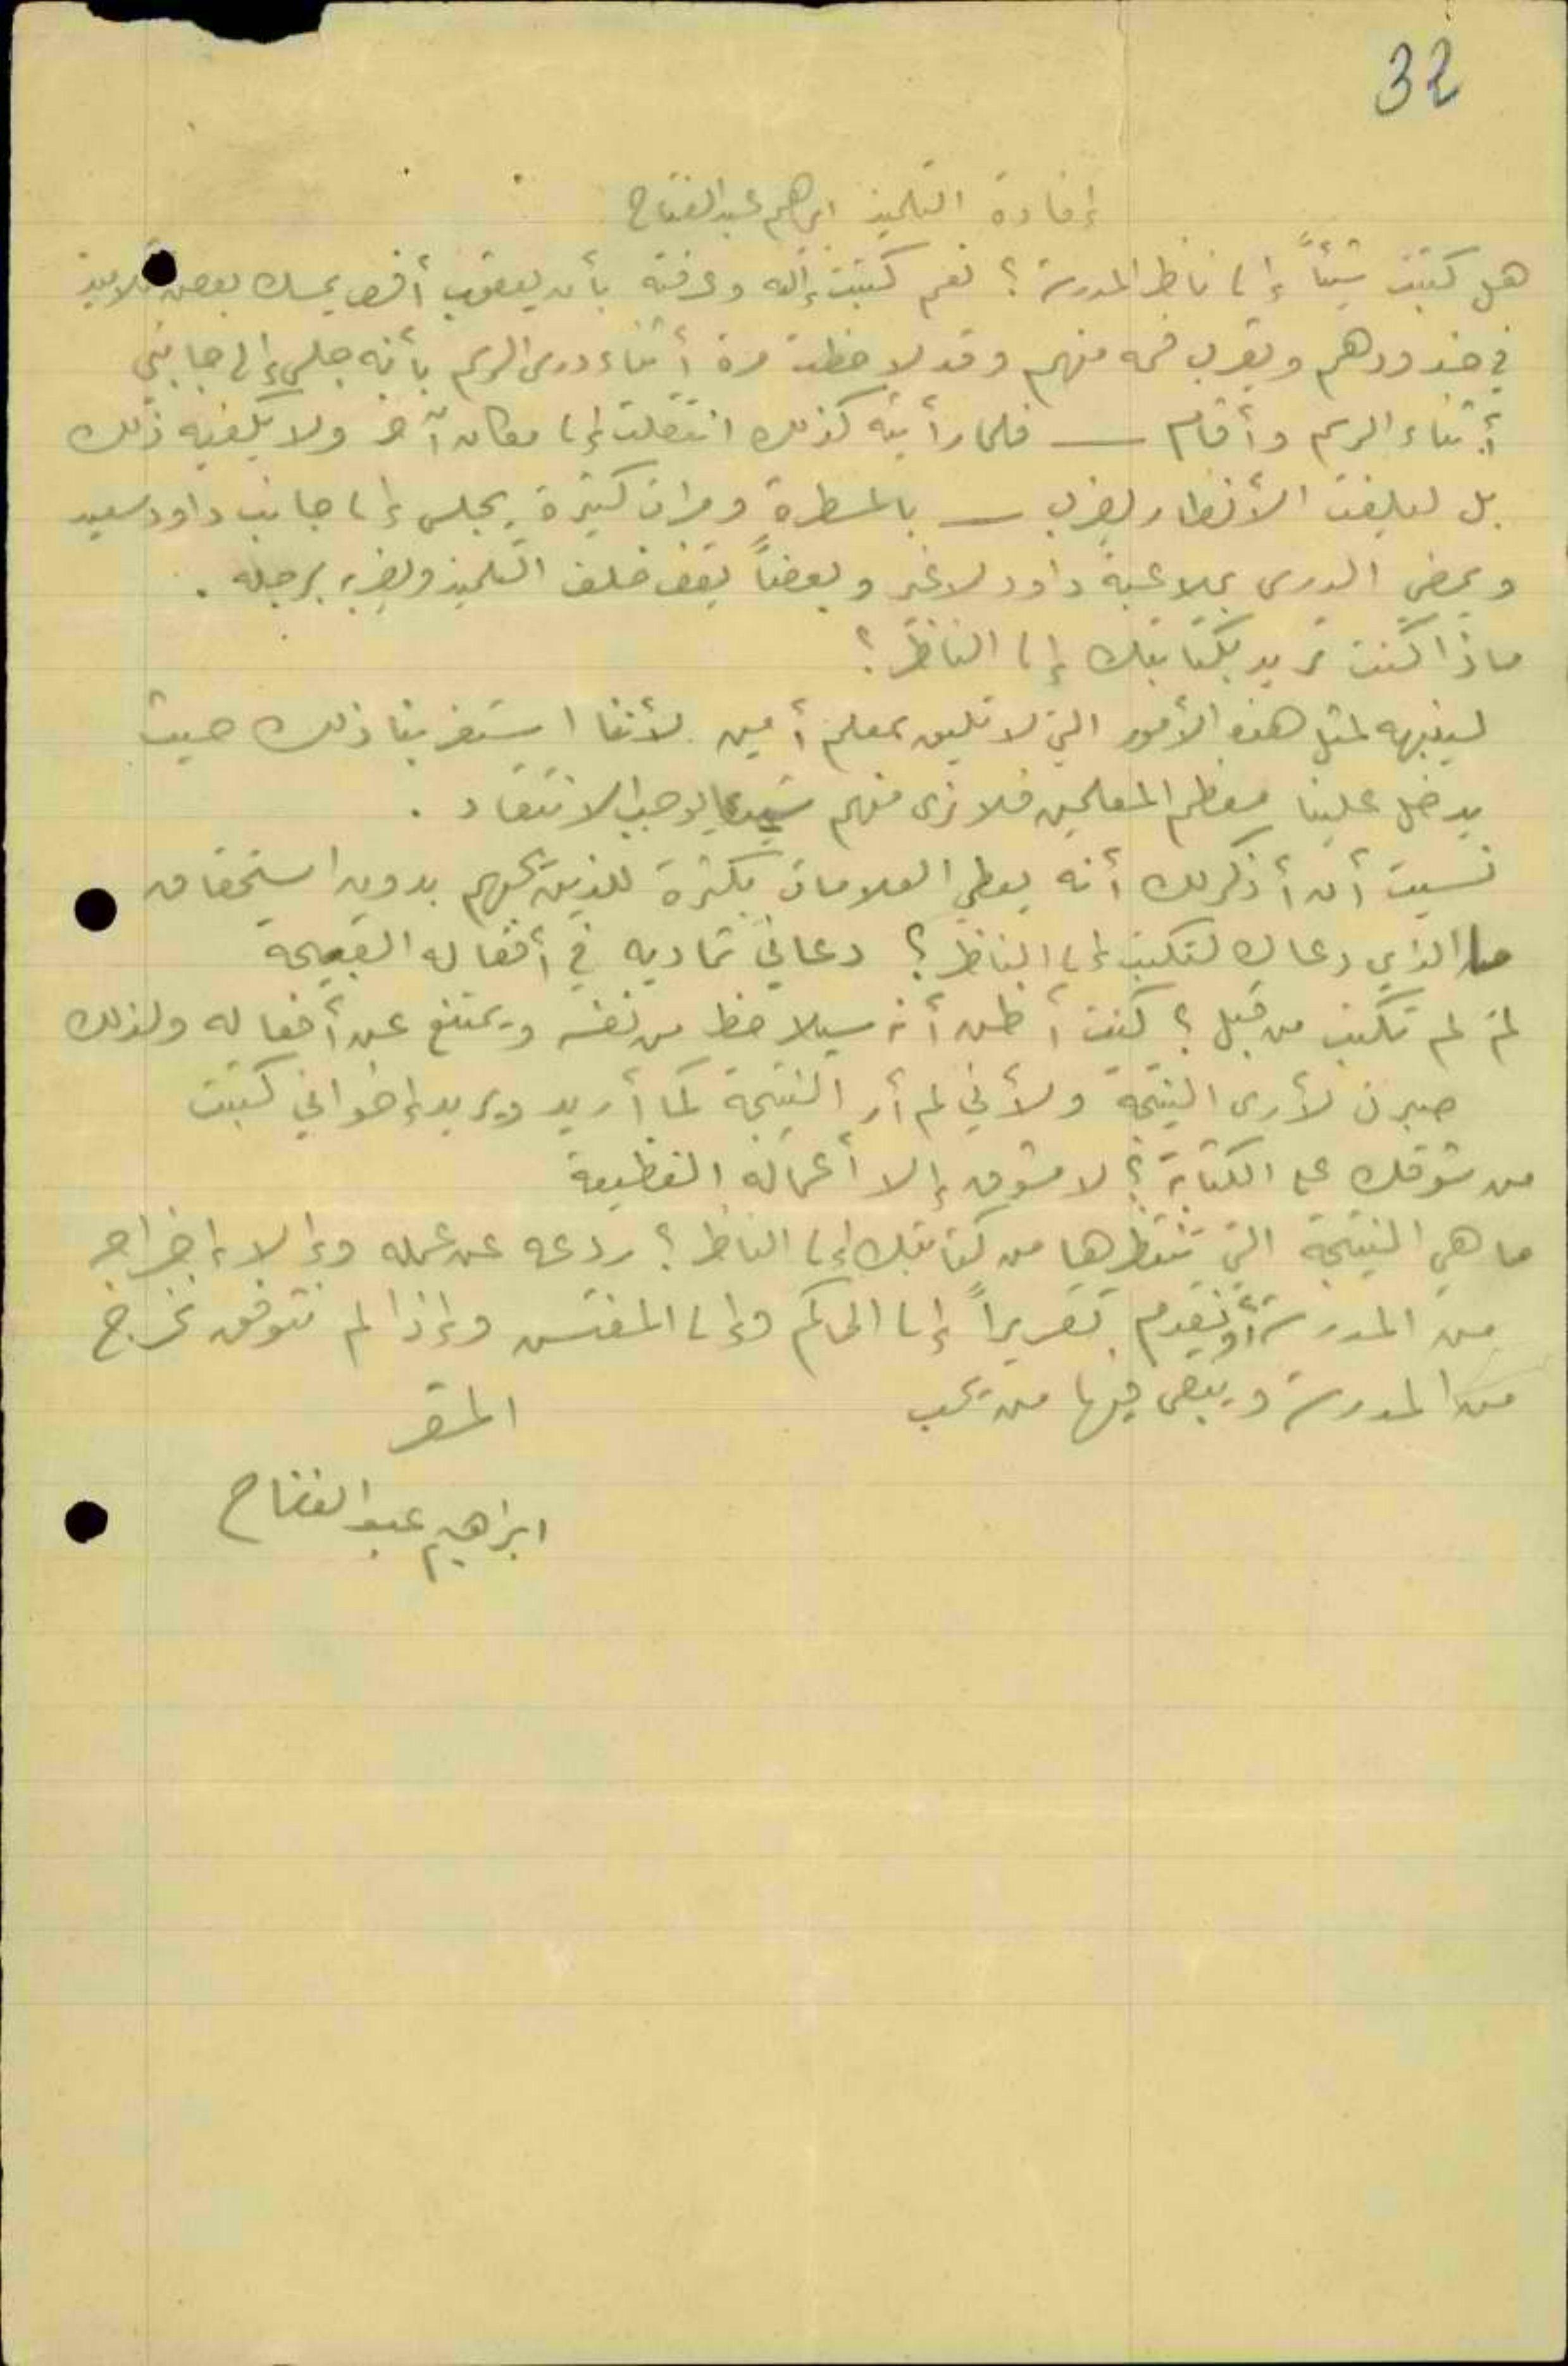 32
إفادة التلميذ ابراهيم عبد الفتاح
هل كتبت شيئاً إلى ناظر المدرسة؟ نعم كتبت إليه وعرفته بأن يعقوب أفندي يمسك بعض تلاميذ
في خدودهم ويقرب فمه منهم وقد لاحظت مرة أثناء درس الرسم بأنه جلس إلى جانبي
أثناء الرسم وأقام — فلما رأيته كذلك انتقلت إلى مكان آخر ولا يكفيه ذلك
بل ليلفت الأنظار يضرب — بالمسطرة ومرات كثيرة يجلس إلى جانب داود سعيد
ويمضي الدرس بملاعبة داود لا غير وبعضاً يقف خلف التلميذ ويضربه برجله .
ماذا كنت تريد بكتابتك إلى الناظر؟
لينبهه لمثل هذه الأمور التي لا تليق بمعلم أمين لأننا استغربنا ذلك حيث
يدخل علينا معظم المعلمين فلا نرى منهم شيئا يوجب الانتقاد .
نسيت أن أذكر لك أنه يعطي العلامات بكثرة للذين يحبهم بدون استحقاق
ما الذي دعاك لتكتب إلى الناظر؟ دعاني تماديه في أفعاله القبيحة
لمَ لم تكتب من قبل؟ كنت أظن أنه سيلاحظ من نفسه ويمتنع عن أفعاله ولذلك
صبرت لأرى النتيجة ولأني لم أر النتيجة كما أريد ويريد إخواني كتبت
من شوقك على الكتابة؟ لا مشوق إلا أعماله الفظيعة
ما هي النتيجة التي تنتظرها من كتابتك إلى الناظر؟ ردعه عن عمله وإلا إخراجه
من المدرسة أو نقدم تقريراً إلى الحاكم وإلى المفتش وإذا لم نتوفق نخرج
من المدرسة ويبقى فيها من يحب
المقر
ابراهيم عبد الفتاح